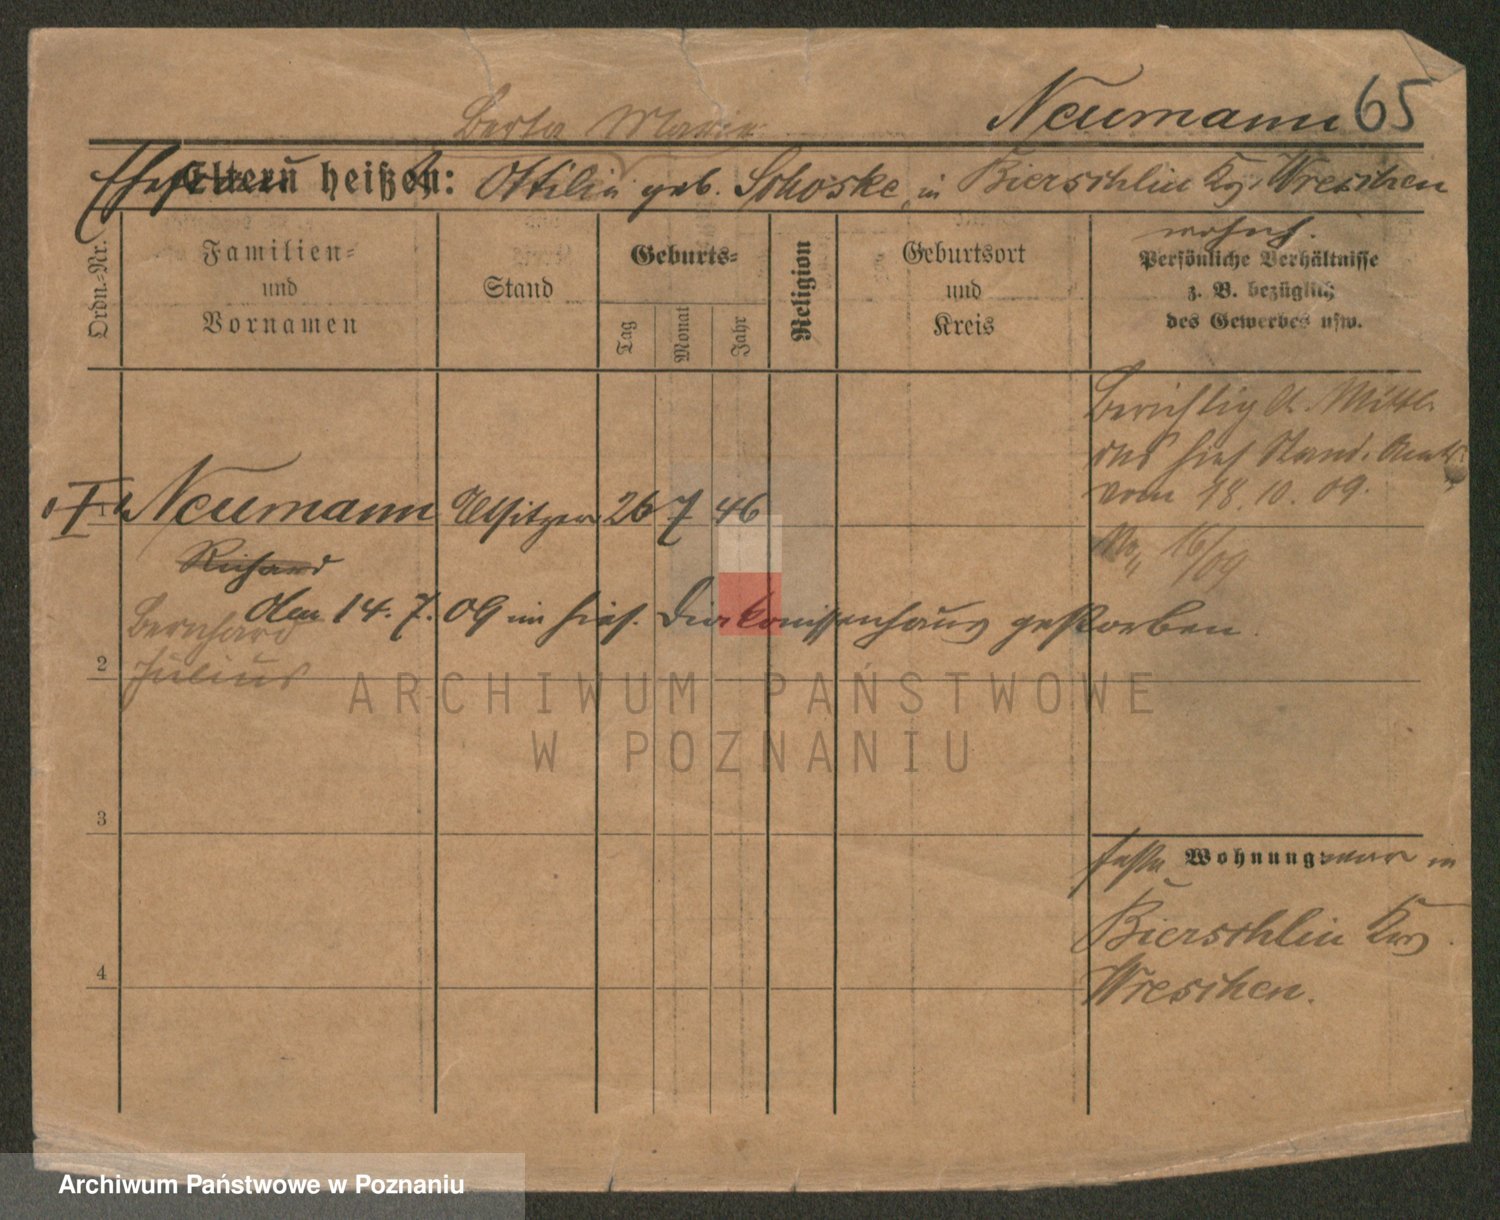 Neumann 65
Berta Marie
Ehefrau
Eltern heißen: Ottilie geb. Schoske, in Bierschlin Krs. Wreschen
wohnh.
Ordn.-Nr.
Familien-
und
Vornamen
Stand
Geburts-
Tag
Monat
Jahr
Religion
Geburtsort
und
Kreis
Persönliche Verhältnisse
z. B. bezüglich
des Gewerbes usw.
Berichtig lt. Mittl.
des hies Stand. Amts
vom 18.10.09.
16/09
I
1 Neumann Altsitzer 26 7 46
Richard
den 14.7.09 im hies. Diakonissenhaus gestorben.
Bernhard
2 Julius
3
4
feste Wohnung: war in
Bierschlin Krs.
Wreschen.
ARCHIWUM PAŃSTWOWE
W POZNANIU
Archiwum Państwowe w Poznaniu